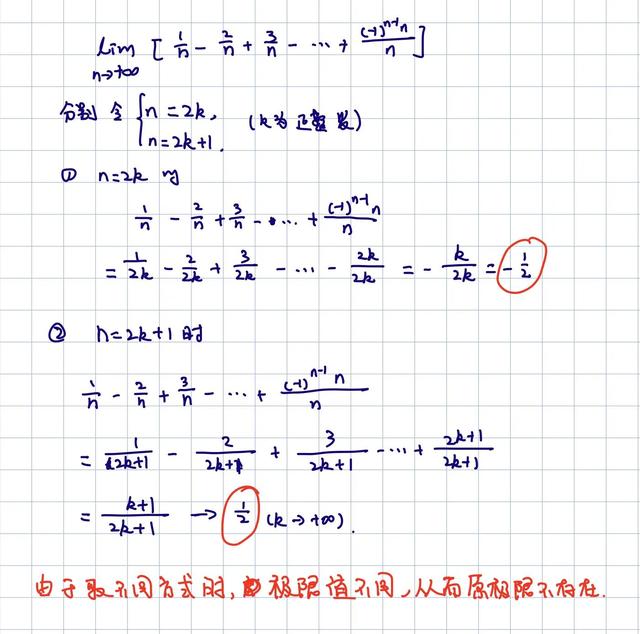 lim n→+∞ [ 1/n - 2/n + 3/n - ... + (-1)^{n-1} n / n ]
分别令 { n = 2k, n = 2k+1. (k为正整数)
① n=2k 时
1/n - 2/n + 3/n - ... + (-1)^{n-1} n / n
= 1/2k - 2/2k + 3/2k - ... - 2k/2k = - k/2k = - 1/2
② n=2k+1 时
1/n - 2/n + 3/n - ... + (-1)^{n-1} n / n
= 1/2k+1 - 2/2k+1 + 3/2k+1 - ... + 2k+1/2k+1
= k+1/2k+1 → 1/2 (k→+∞).
由于取不同方式时, 极限值不同, 从而原极限不存在.